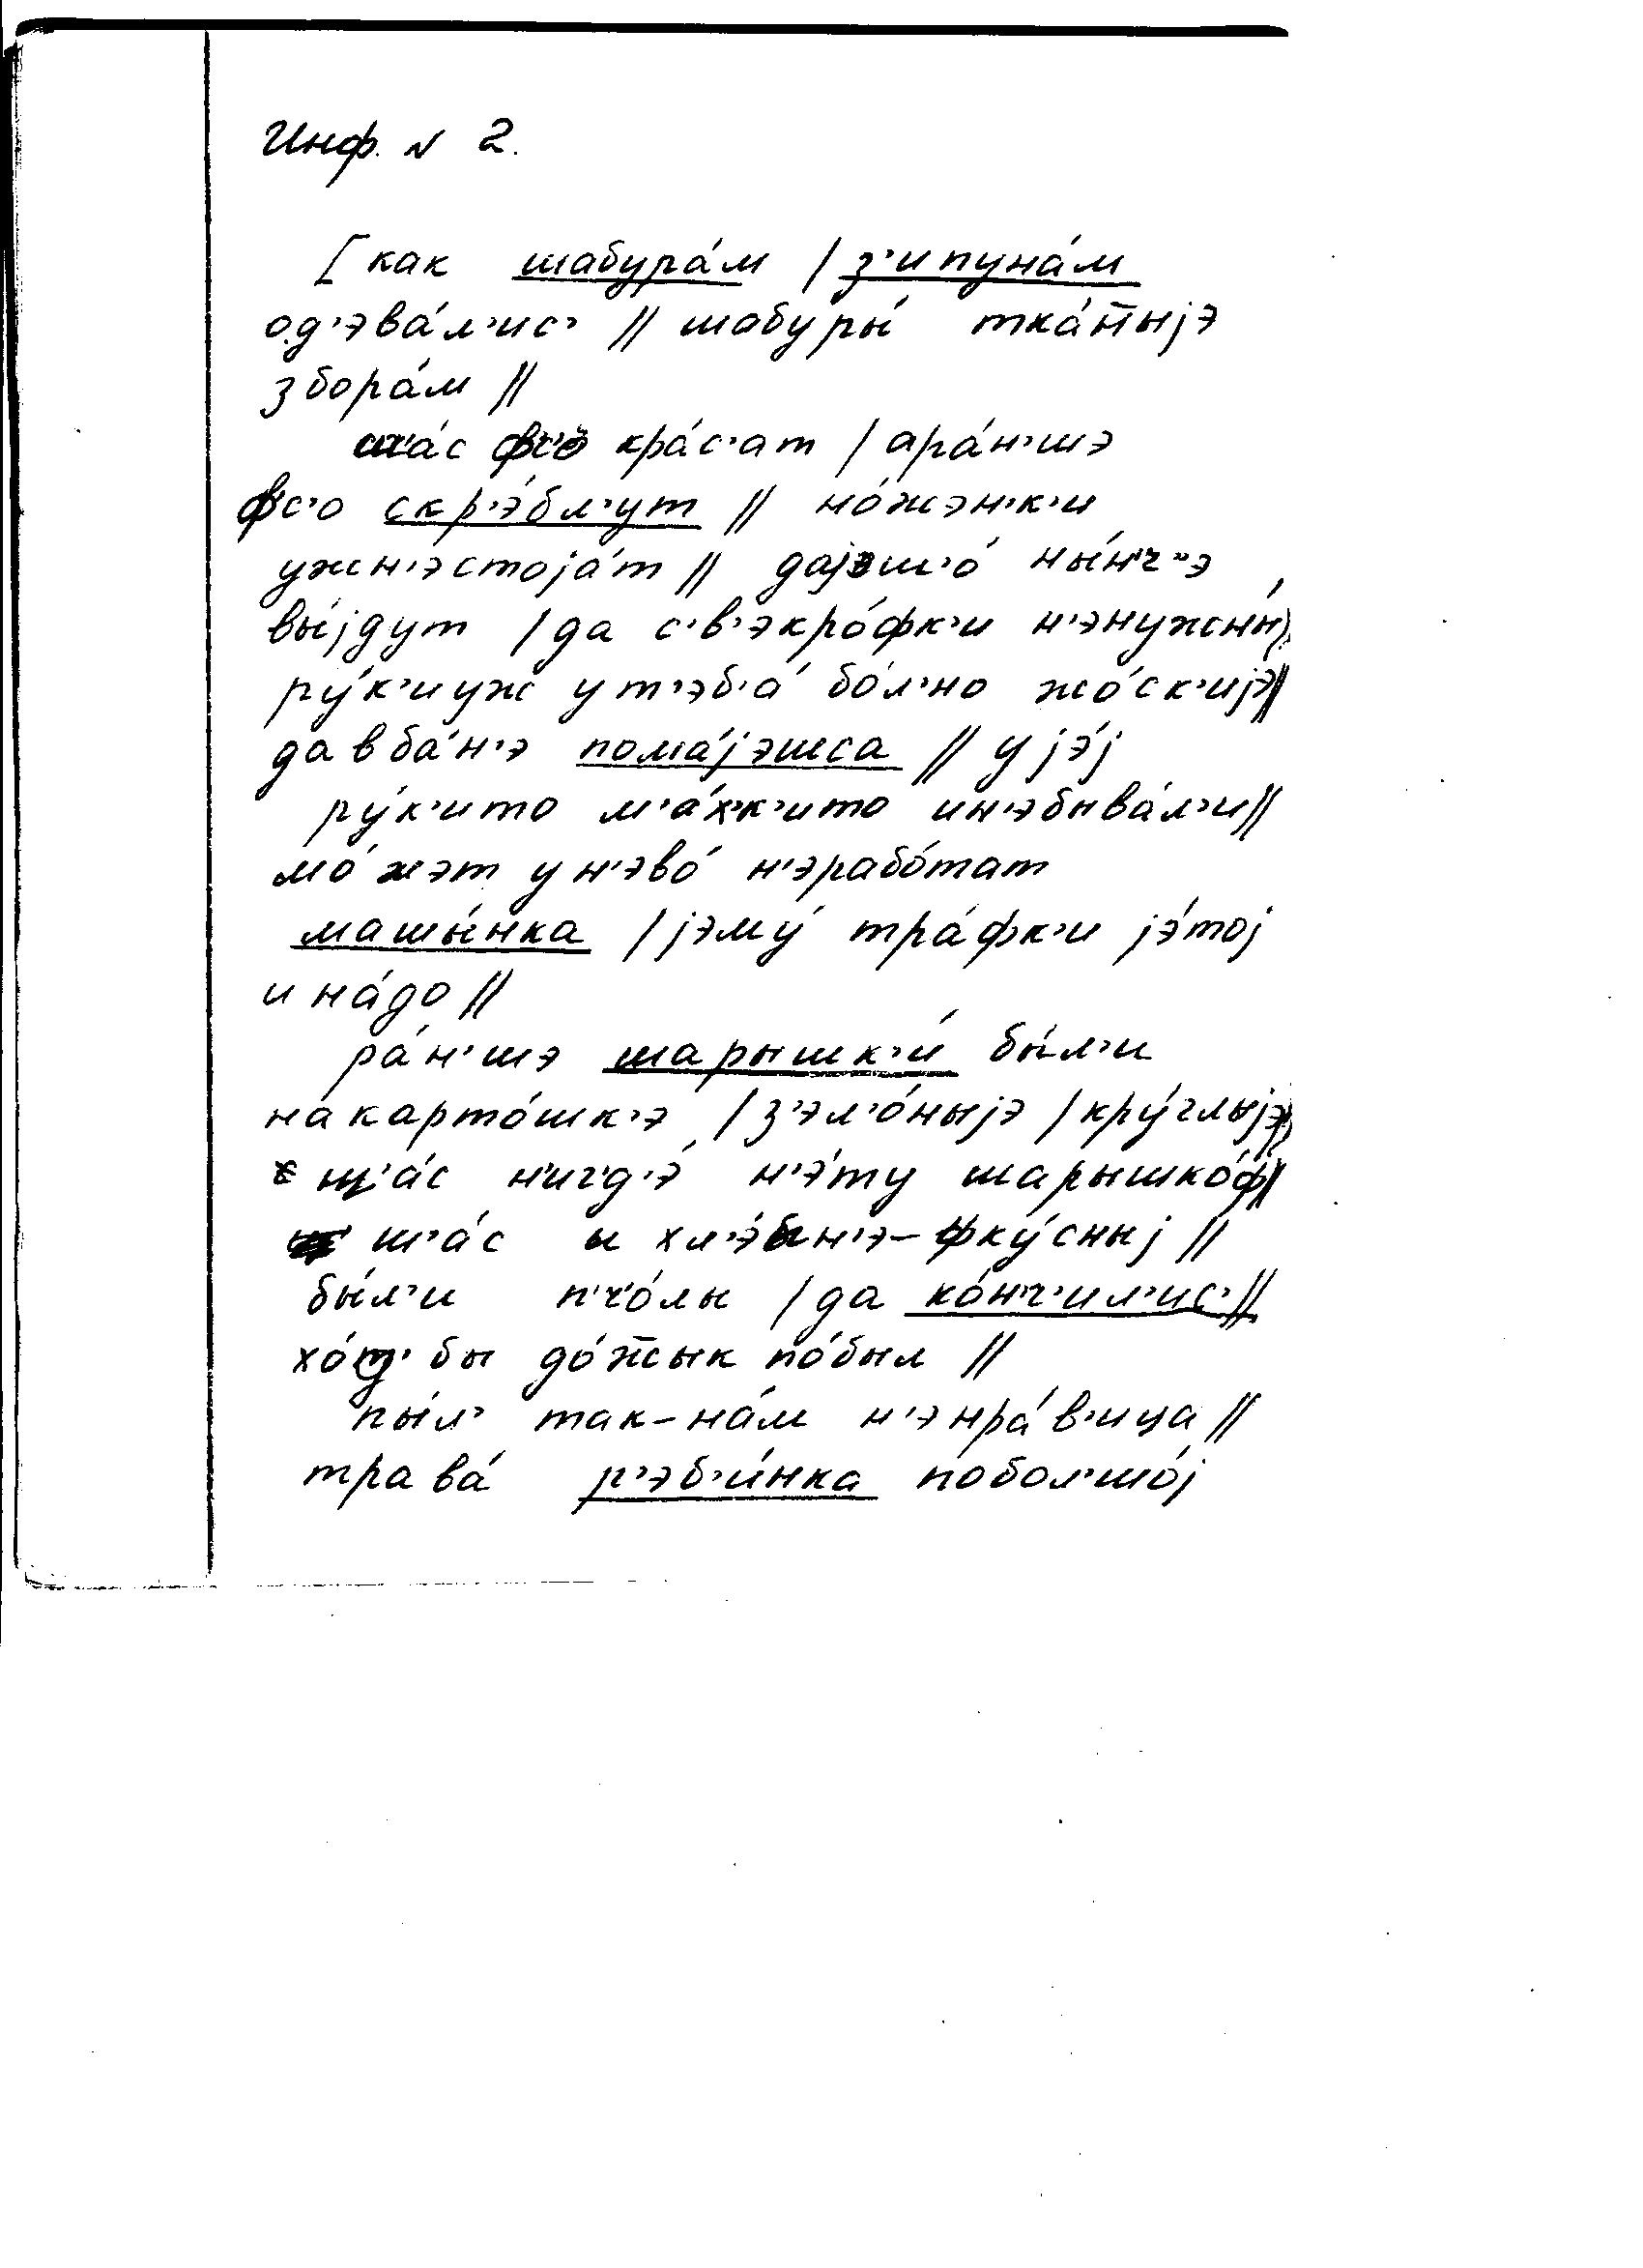 Инф. № 2.
[ как шабура́м / з'ипуна́м
од'эва́л'ис' // шабуры́ тка́н̄ыjэ
збора́м //
ш'а́с фс'о́ кра́с'ат / ара́н'шэ
фс'о скр'э́бл'ут // но́жэн'к'и
ужн'эстоjа́т // даjэш'о́ ны́н'ч'э
вы́jдут / да с'в'экро́фк'и н'энужны́ /
ру́к'иуж ут'эб'а́ бо́л'но жо́ск'иjэ //
давба́н'э пома́jэшса // уjэ́j
ру́к'ито м'а́х'к'ито ин'эбыва́л'и //
мо́жэт ун'эво́ н'эрабо́тат
машы́нка / jэму́ тра́фк'и jэ́тоj
ина́до //
ра́н'шэ шарышк'и́ бы́л'и
накарто́шк'э / з'эл'о́ныjэ / кру́глыjэ /
щ'а́с н'иг'д'э́ н'э́ту шарышко́ф //
ш'а́с ы хл'э́бын'э-фку́сныj //
бы́л'и п'ч'о́лы / да ко́н'ч'ил'ис' //
хо́д' бы до́ж̄ык по́был //
пы́л' так-на́м н'энра́в'ица //
трава́ р'эб'и́нка побол'шо́j